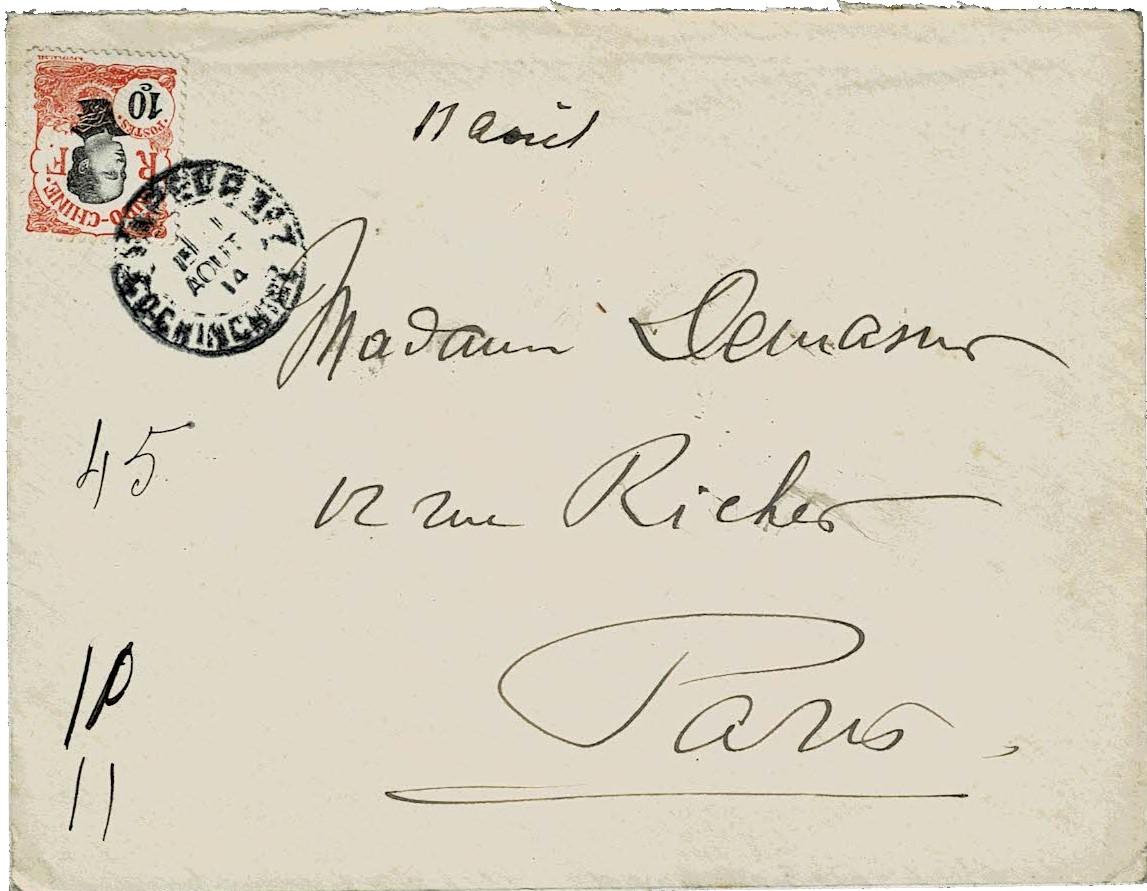 10c
POSTES
R F
INDO-CHINE
11 août
AOUT
14
COCHINCHINE
Madame
45
12 rue Richer
Paris
10
11